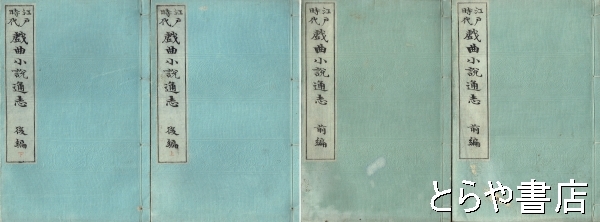 江戸時代 戯曲小説通志 後編
江戸時代 戯曲小説通志 後編
江戸時代 戯曲小説通志 前編
江戸時代 戯曲小説通志 前編
とらや書店